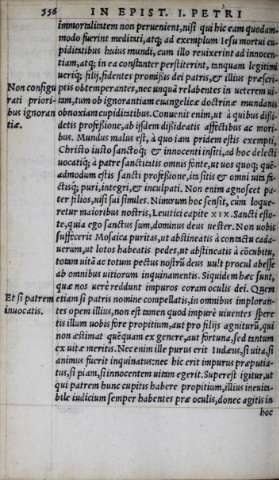 356 IN EPIST. I. PETRI
immortalitatem non perueniet, nisi qui hic eam quodam
modo fuerint meditati, atq; ad exemplum Iesu mortui cu-
piditatibus huius mundi, cum illo reuixerint ad innocen-
tiam, atq; in ea constanter perstiterint, tanquam legitimi
ueriq; filij, fidentes promissis dei patris, & illius præscri-
Non configu ptis obtemperantes, nec unquã relabentes in ueterem ui-
rati priori- tam, tum ob ignorantiam euangelicæ doctrinæ mundanis
bus ignoran obnoxiam cupiditatibus. Conuenit enim, ut à quibus dissi-
tiæ. detis professione, ab ijsdem dissideatis affectibus ac mori-
bus. Mundus malus est, à quo iam pridem estis exempti,
Christo iusto sanctoq; & innocenti insiti, ad hoc delecti
uocatiq; à patre sanctitatis omnis fonte, ut uos quoq; quẽ-
admodum estis sancti professione, ita sitis & omni uitæ
ctisq; puri, integri, & inculpati. Non enim agnoscet pa-
ter filios, nisi sui similes. Nimirum hoc sensit, cum loque-
retur maioribus nostris, Leuitici capite XIX. Sancti esto-
te, quia ego sanctus sum, dominus deus uester. Non uobis
suffecerit Mosaica puritas, ut abstineatis à contactu cada-
uerum, ut lotos habeatis pedes, ut abstineatis à cõcubitu,
totum uitã ac totum pectus nostrũ deus uult procul abesse
ab omnibus uitiorum inquinamentis. Siquidem hæc sunt,
quæ nos uerè reddunt impuros coram oculis dei. Quem
Et si patrem etiam si patris nomine compellatis, in omnibus imploran-
inuocatis. tes opem illius, non est tamen quod impurè uiuentes spere
tis illum uobis fore propitium, aut pro filijs agniturũ, qui
non æstimat quẽquam ex genere, aut fortuna, sed tantum
ex uitæ meritis. Nec enim ille purus erit Iudæus, si uita, si
animus fuerit inquinatus: nec hic erit impurus præputia-
tus, si piam, si innocentem uitam egerit. Superest igitur, ut
qui patrem hunc cupitis habere propitium, illius ineuita-
bile iudicium semper habentes præ oculis, donec agitis in
hoc